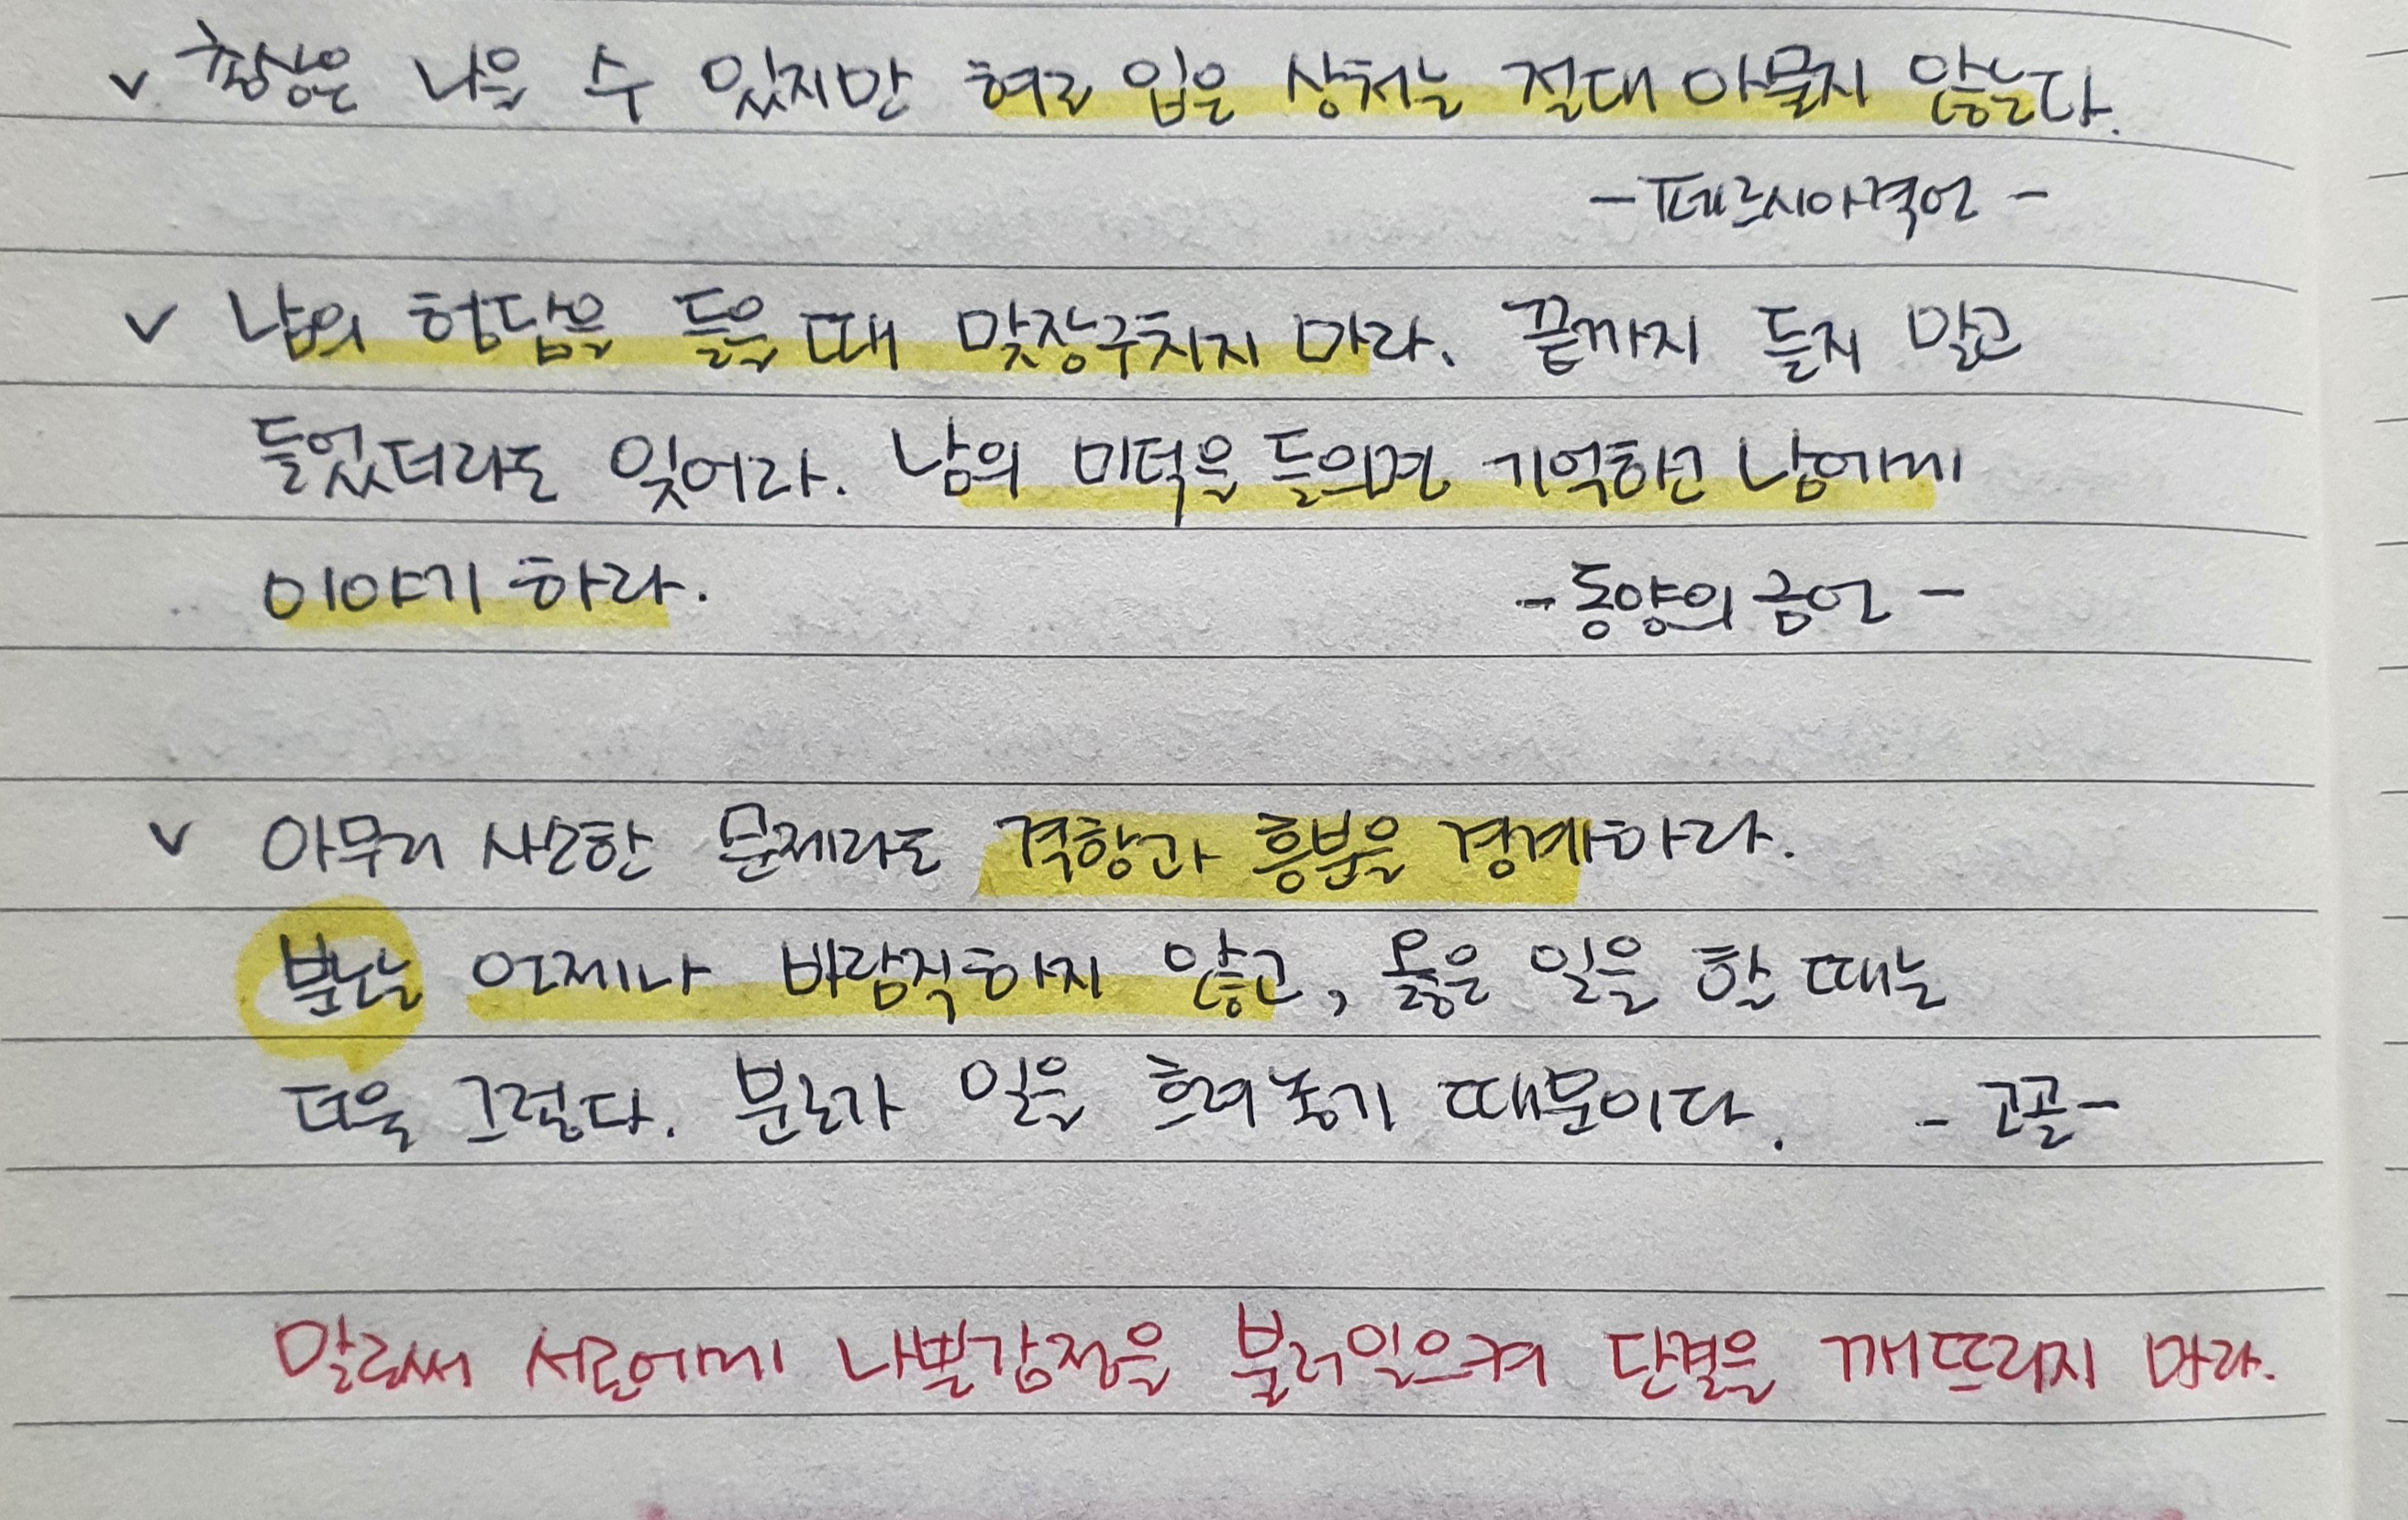 v 총상은 나을 수 있지만 혀로 입은 상처는 절대 아물지 않는다.
- 페르시아격언 -
v 남의 험담을 들을 때 맞장구치지 마라. 끝까지 듣지 말고
들었더라도 잊어라. 남의 미덕을 들으면 기억하고 남에게
이야기 하라.
- 동양의 금언 -
v 아무리 사소한 문제라도 격항과 흥분을 경계하라.
분노는 언제나 바람직하지 않고, 옳은 일을 할 때는
더욱 그렇다. 분노가 일을 흐려놓기 때문이다. - 고골 -
말로써 서로에게 나쁜감정을 불러일으켜 단결을 깨뜨리지 마라.